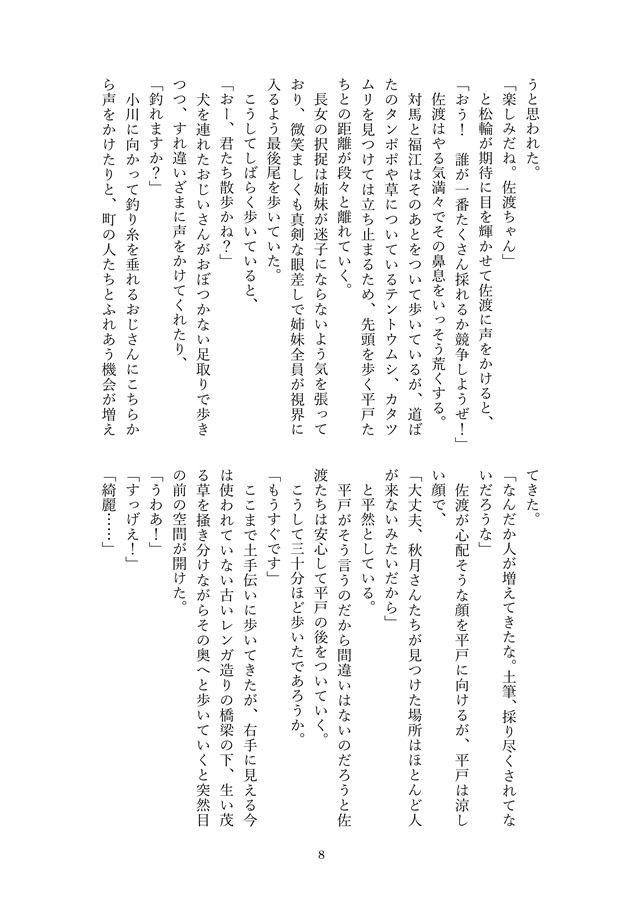 うと思われた。
「楽しみだね。佐渡ちゃん」
と松輪が期待に目を輝かせて佐渡に声をかけると、
「おう！　誰が一番たくさん採れるか競争しようぜ！」
佐渡はやる気満々でその鼻息をいっそう荒くする。
対馬と福江はそのあとをついて歩いているが、道ば
たのタンポポや草についているテントウムシ、カタツ
ムリを見つけては立ち止まるため、先頭を歩く平戸た
ちとの距離が段々と離れていく。
長女の択捉は姉妹が迷子にならないよう気を張って
おり、微笑ましくも真剣な眼差しで姉妹全員が視界に
入るよう最後尾を歩いていた。
こうしてしばらく歩いていると、
「おー、君たち散歩かね？」
犬を連れたおじいさんがおぼつかない足取りで歩き
つつ、すれ違いざまに声をかけてくれたり、
「釣れますか？」
小川に向かって釣り糸を垂れるおじさんにこちらか
ら声をかけたりと、町の人たちとふれあう機会が増え
てきた。
「なんだか人が増えてきたな。土筆、採り尽くされてな
いだろうな」
佐渡が心配そうな顔を平戸に向けるが、平戸は涼し
い顔で、
「大丈夫、秋月さんたちが見つけた場所はほとんど人
が来ないみたいだから」
と平然としている。
平戸がそう言うのだから間違いはないのだろうと佐
渡たちは安心して平戸の後をついていく。
こうして三十分ほど歩いたであろうか。
「もうすぐです」
ここまで土手伝いに歩いてきたが、右手に見える今
は使われていない古いレンガ造りの橋梁の下、生い茂
る草を掻き分けながらその奥へと歩いていくと突然目
の前の空間が開けた。
「うわあ！」
「すっげえ！」
「綺麗……」
8